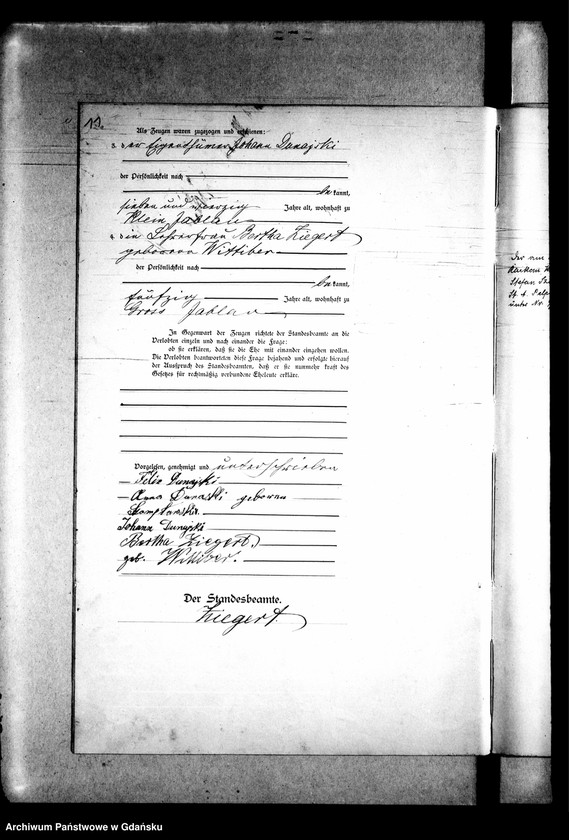 11.
Als Zeugen waren zugezogen und erschienen:
3. der Eigenthümer Johann Dunajski
der Persönlichkeit nach
bekannt,
sieben und vierzig Jahre alt, wohnhaft zu
Klein Jablau
4. die Lehrerfrau Bertha Ziegert
geborene Wittiber
der Persönlichkeit nach
bekannt,
fünfzig Jahre alt, wohnhaft zu
Gross Jablau
In Gegenwart der Zeugen richtete der Standesbeamte an die
Verlobten einzeln und nach einander die Frage:
ob sie erklären, daß sie die Ehe mit einander eingehen wollen.
Die Verlobten beantworteten diese Frage bejahend und erfolgte hierauf
der Ausspruch des Standesbeamten, daß er sie nunmehr kraft des
Gesetzes für rechtmäßig verbundene Eheleute erkläre.
Vorgelesen, genehmigt und unterschrieben
Dunajski
Anna Dunajski geborene
Johann Dunajski
Bertha Ziegert
geb. Wittiber.
Der Standesbeamte.
Ziegert
Stefan
unter Nr.
Archiwum Państwowe w Gdańsku